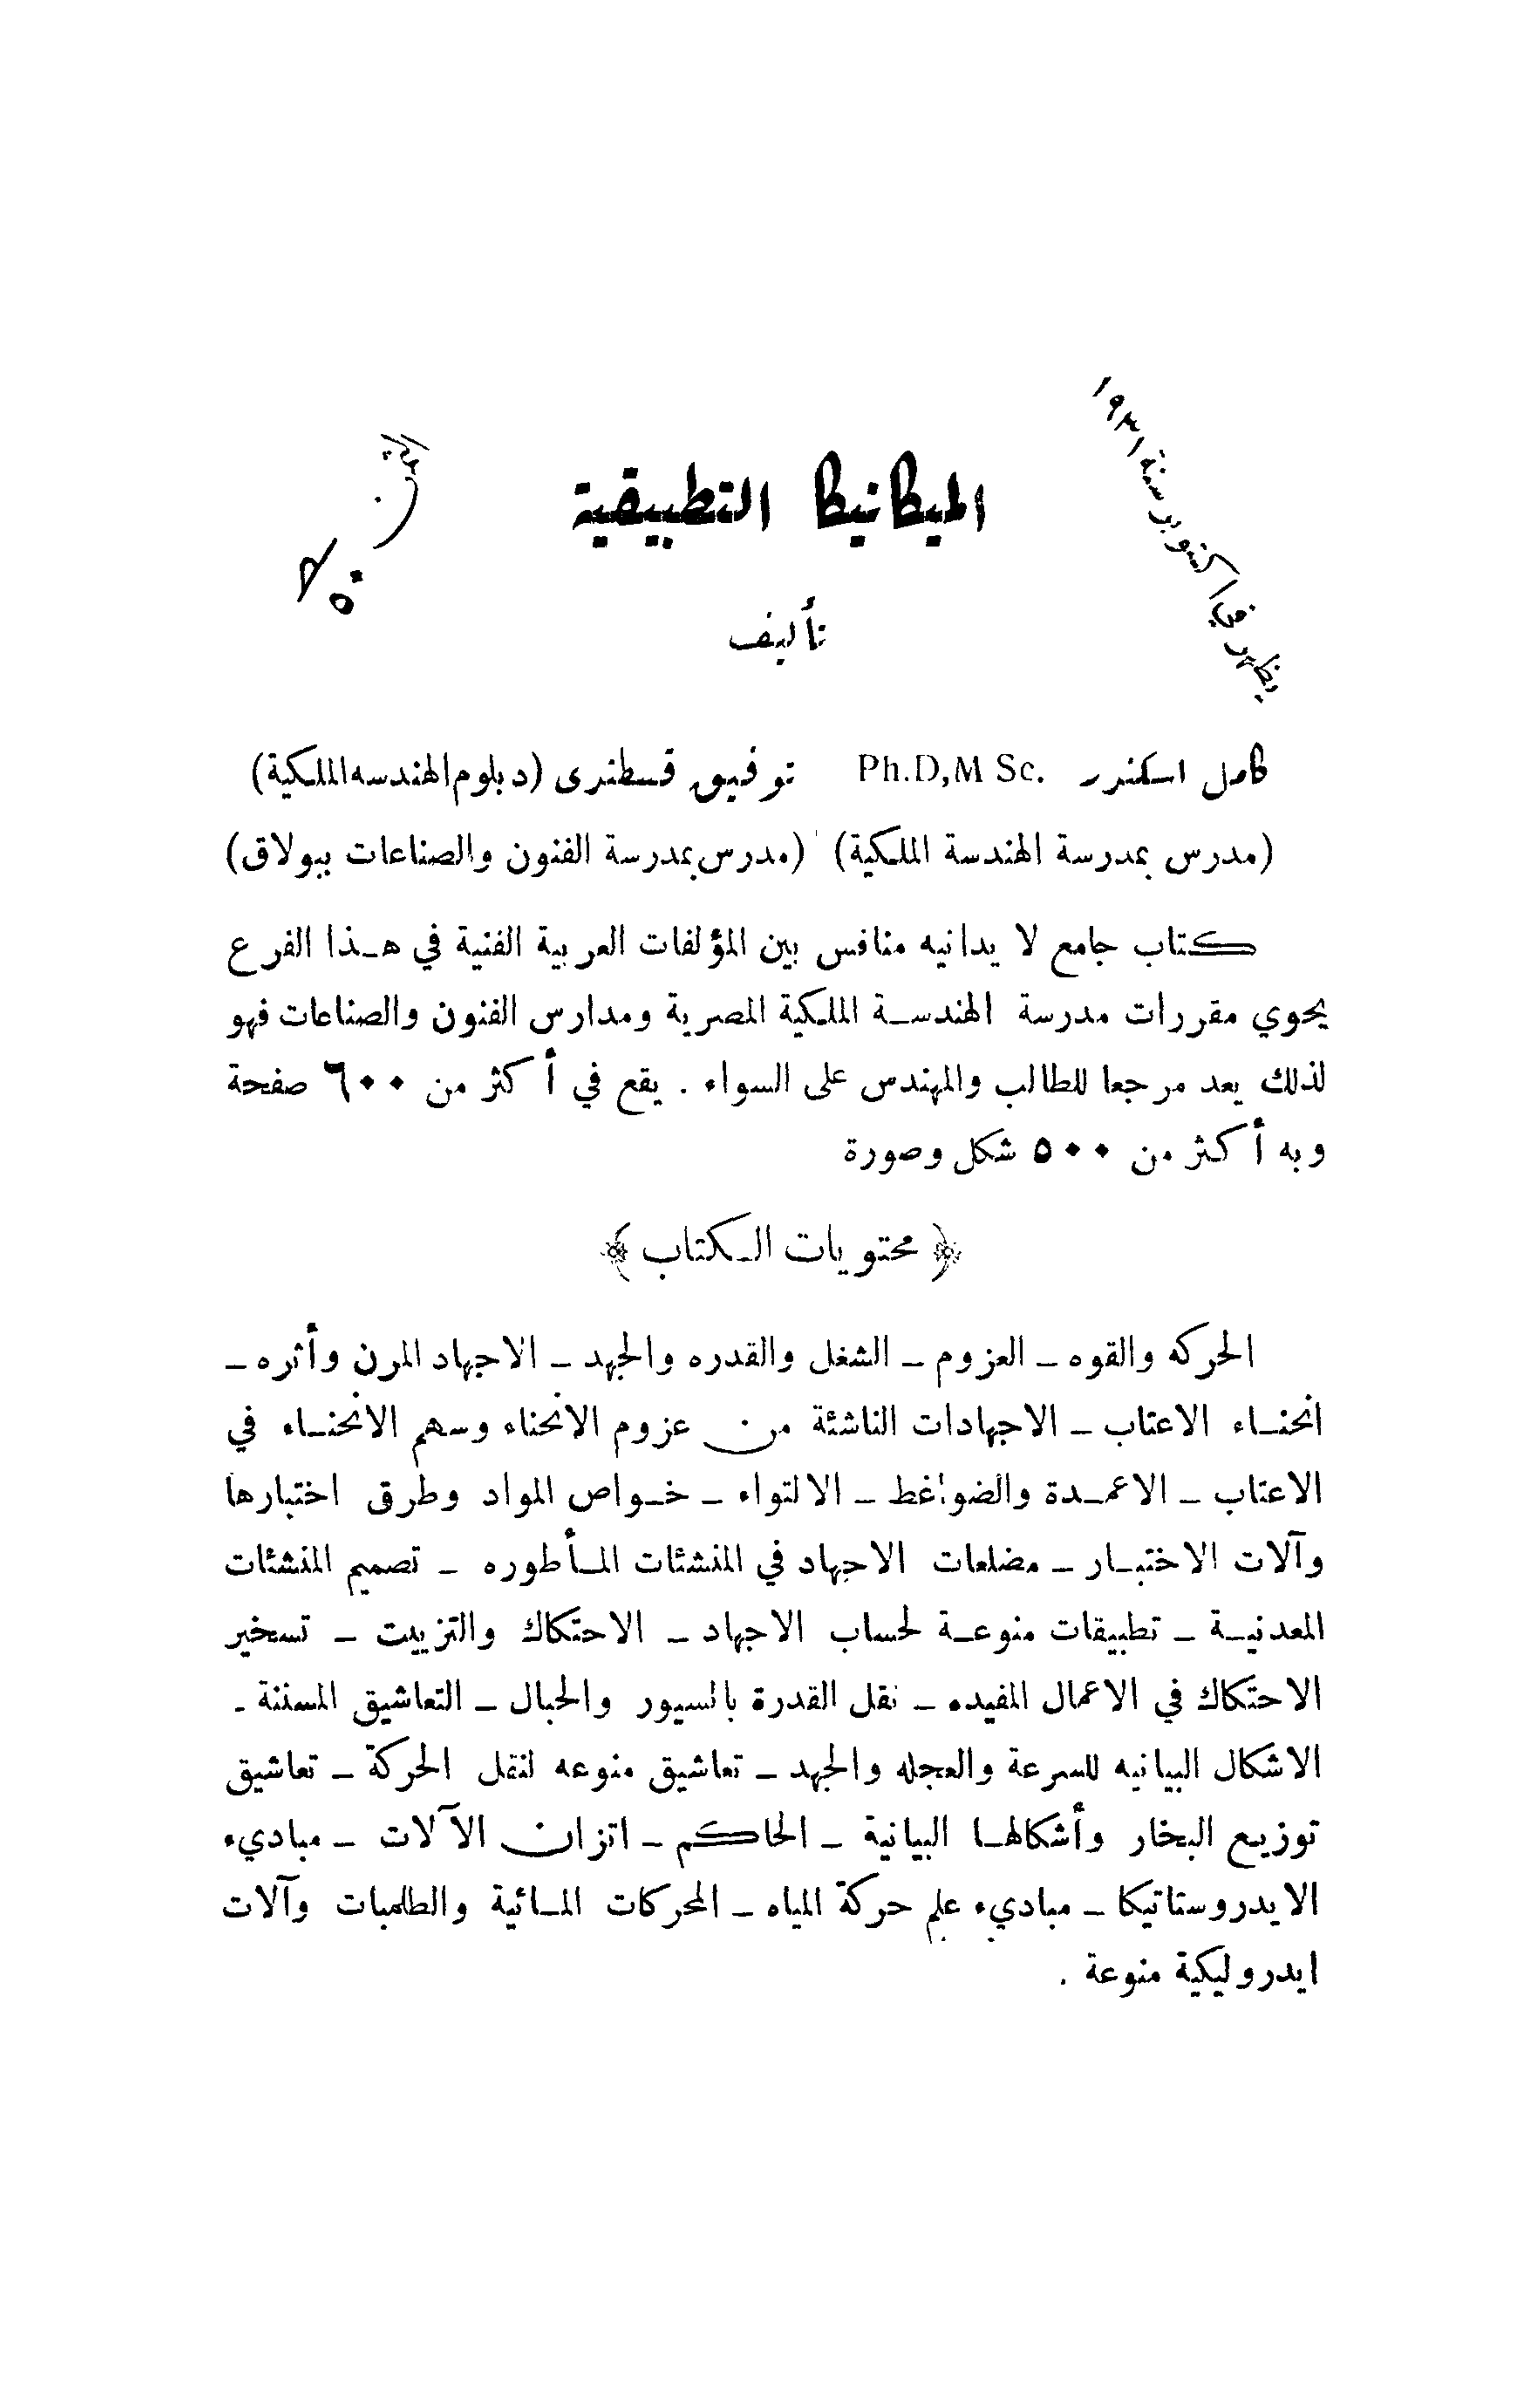 يظهر في اكتوبر سنة ١٩٣١
الميكانيكا التطبيقية
الثمن
٥٠
تأليف
كامل اسكندر Ph.D,M Sc. توفيق قسطندى (دبلوم الهندسه الملكية)
(مدرس بمدرسة الهندسة الملكية) (مدرس بمدرسة الفنون والصناعات ببولاق)
كتاب جامع لا يدانيه منافس بين المؤلفات العربية الفنية في هذا الفرع
يحوي مقررات مدرسة الهندسة الملكية المصرية ومدارس الفنون والصناعات فهو
لذلك يعد مرجعا للطالب والمهندس على السواء . يقع في أكثر من ٦٠٠ صفحة
وبه أكثر من ٥٠٠ شكل وصورة
﴿ محتويات الكتاب ﴾
الحركه والقوه ــ العزوم ــ الشغل والقدره والجهد ــ الاجهاد المرن وأثره ــ
انحناء الاعتاب ــ الاجهادات الناشئة من عزوم الانحناء وسهم الانحناء في
الاعتاب ــ الاعمدة والضواغط ــ الالتواء ــ خواص المواد وطرق اختبارها
وآلات الاختبار ــ مضلعات الاجهاد في المنشئات المأطوره ــ تصميم المنشئات
المعدنية ــ تطبيقات منوعة لحساب الاجهاد ــ الاحتكاك والتزييت ــ تسخير
الاحتكاك في الاعمال المفيده ــ نقل القدرة بالسيور والحبال ــ التعاشيق المسننة ــ
الاشكال البيانيه للسرعة والعجله والجهد ــ تعاشيق منوعه لنقل الحركة ــ تعاشيق
توزيع البخار وأشكالها البيانية ــ الحاكم ــ اتزان الآلات ــ مباديء
الايدروستاتيكا ــ مباديء علم حركة المياه ــ المحركات المائية والطلمبات وآلات
ايدروليكية منوعة .